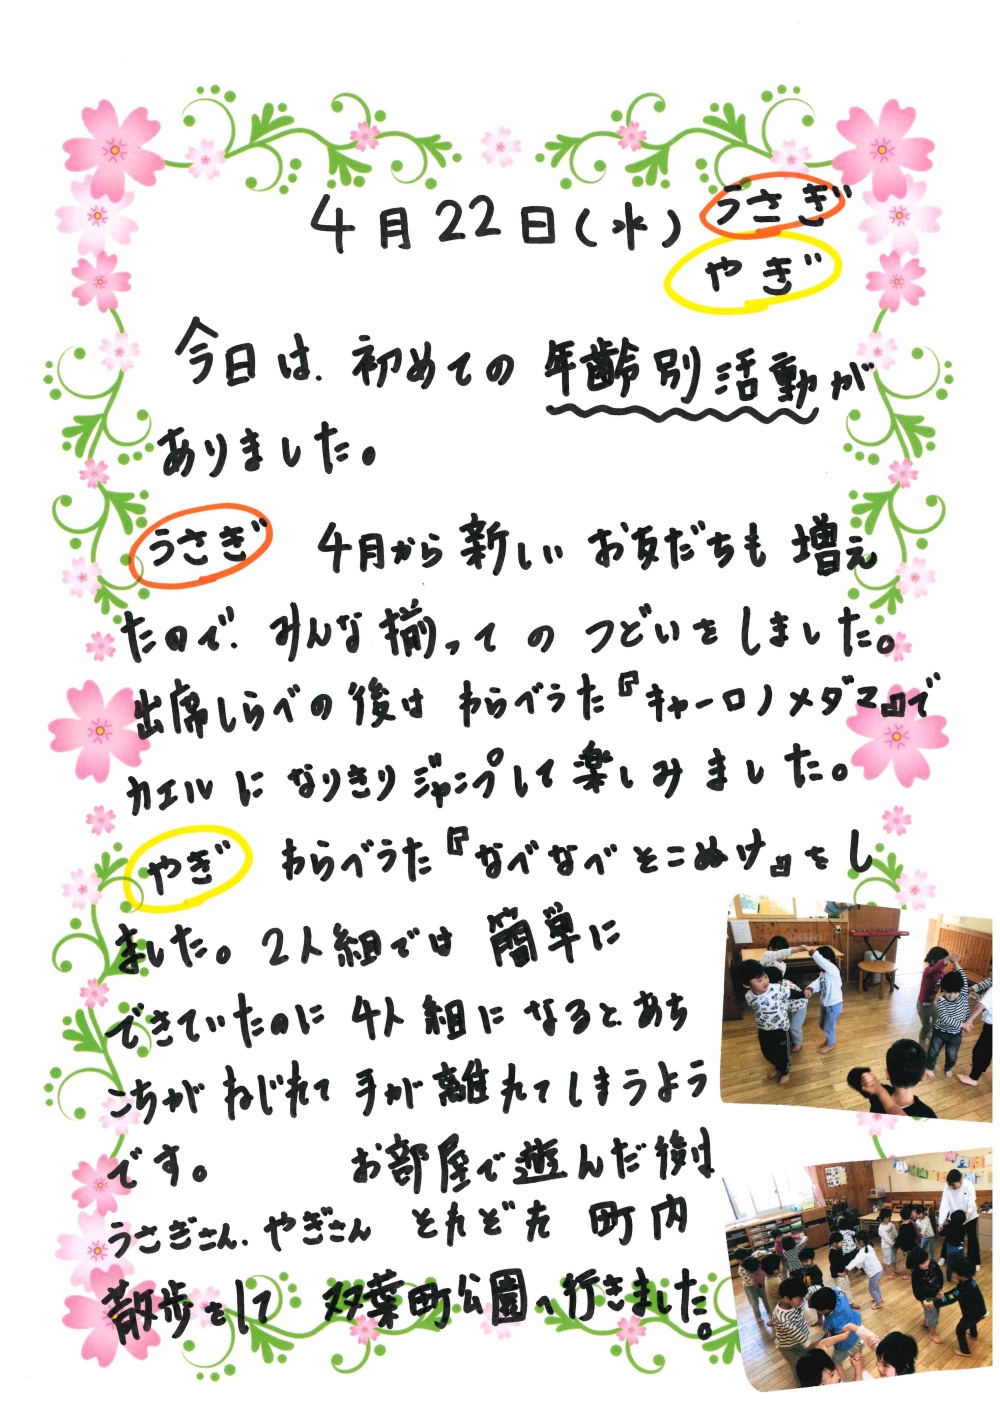 4月22日(水) うさぎ
やぎ
今日は、初めての年齢別活動が
ありました。
うさぎ 4月から新しいお友だちも増え
たので、みんな揃ってのつどいをしました。
出席しらべの後はわらべうた『キャーロノメダマ』で
カエルになりきりジャンプして楽しみました。
やぎ わらべうた『なべなべそこぬけ』をし
ました。2人組では簡単に
できていたのに4人組になると、あち
こちがねじれて手が離れてしまうよう
です。 お部屋で遊んだ後は
うさぎさん、やぎさん それぞれ 町内
散歩をして 双葉町公園へ行きました。